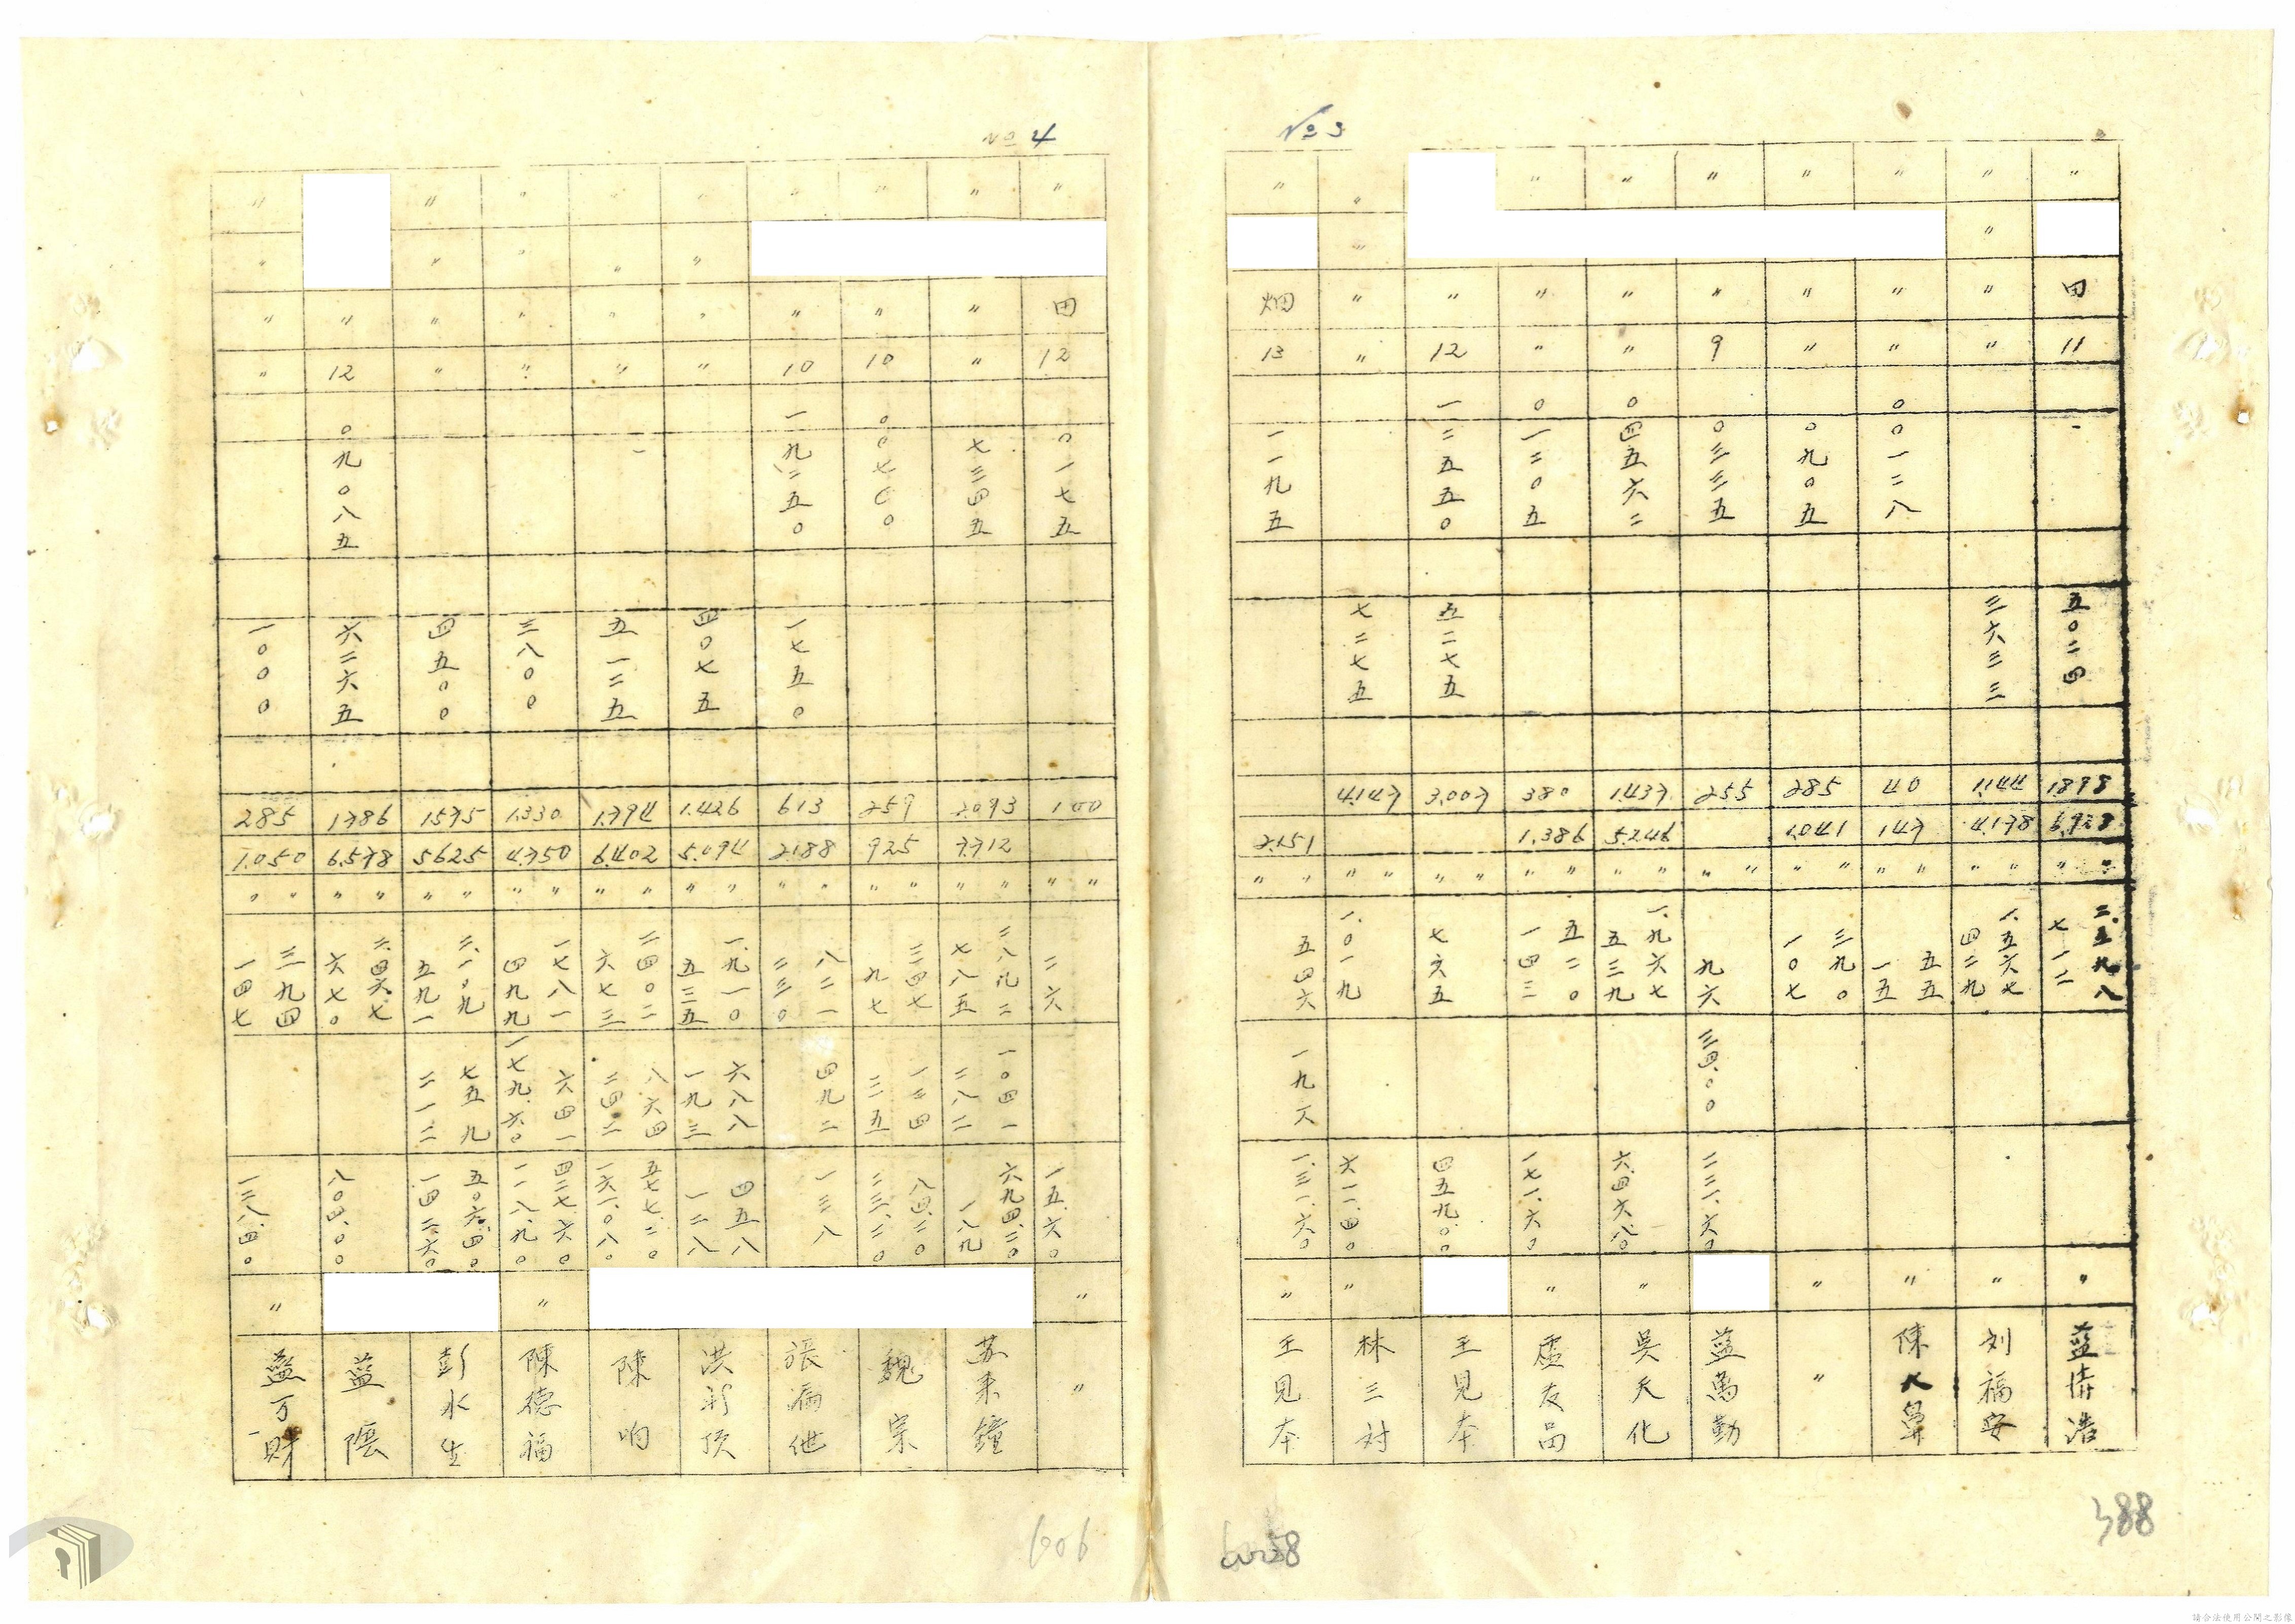 № 3
〃 田 11 五〇二四 1898 6,928 〃 〃 二、五九八 七一二 〃 藍清浩
〃 〃 〃 〃 三六三三 1,144 4,178 〃 〃 一、五六七 四二九 〃 刘福安
〃 〃 〃 〇〇一二八 40 147 〃 〃 五五 一五 〃 陳大鼻
〃 〃 〃 〇九〇五 285 1,041 〃 〃 三九〇 一〇七 〃 〃
〃 〃 9 〇三三五 255 〃 〃 九六 三四.〇〇 二三一.六〇 藍萬勤
〃 〃 〃 〇四五六二 1,437 5,246 〃 〃 一、九六七 五三九 六四六.八〇 〃 吳天化
〃 〃 〃 〇一二〇五 380 1,386 〃 〃 五二〇 一四三 一七一.六〇 〃 友品
〃 12 一二五五〇 五二七五 3,007 〃 〃 七六五 四五九.〇〇 王見本
〃 〃 〃 〃 七二七五 4,147 〃 〃 一、〇一九 六一一.四〇 〃 林三对
〃 畑 13 一一九五 2,151 〃 〃 五四六 一九八 一、三一.六〇 〃 王見本
388
№ 4
〃 田 12 〇一七五 100 〃 〃 二六 一五.六〇 〃 〃
〃 〃 〃 七三四五 2,093 7,712 〃 〃 二八九二 七八五 一〇四一 二八二 六九四.二〇 一八九 苏来鐘
〃 〃 10 〇〇七〇〇 259 925 〃 〃 三四七 九七 一二四 三五 八四.二〇 二三.二〇 魏宗
〃 〃 10 一九二五〇 一七五〇 613 2,188 〃 〃 八二一 二三〇 四九二 一三八 張漏
〃 〃 〃 〃 四〇七五 1,426 5,094 〃 〃 一、九一〇 五三五 六八八 一九三 四五八 一二八 洪彩頂
〃 〃 〃 〃 五一二五 1,794 6,402 〃 〃 二四〇二 六七三 八六四 二四二 五七七.二〇 一六一.〇八〇 陳响
〃 〃 〃 〃 三八〇〇 1,330 4,750 〃 〃 一七八一 四九九 六四一 一七九.六〇 四二七.六〇 一一八.九〇 〃 陳德福
〃 〃 〃 〃 四五〇〇 1,575 5625 〃 〃 二、一〇九 五九一 七五九 二一二 五〇六.四〇 一四二.六〇 彭水生
〃 12 〇九〇八五 六二六五 1,786 6,578 〃 〃 二、四六七 六七〇 八〇四.〇〇 藍陰
〃 〃 〃 〃 一〇〇〇 285 1,050 〃 〃 三九四 一四七 一二八.四〇 〃 藍万財
606
請合法使用公開之影像